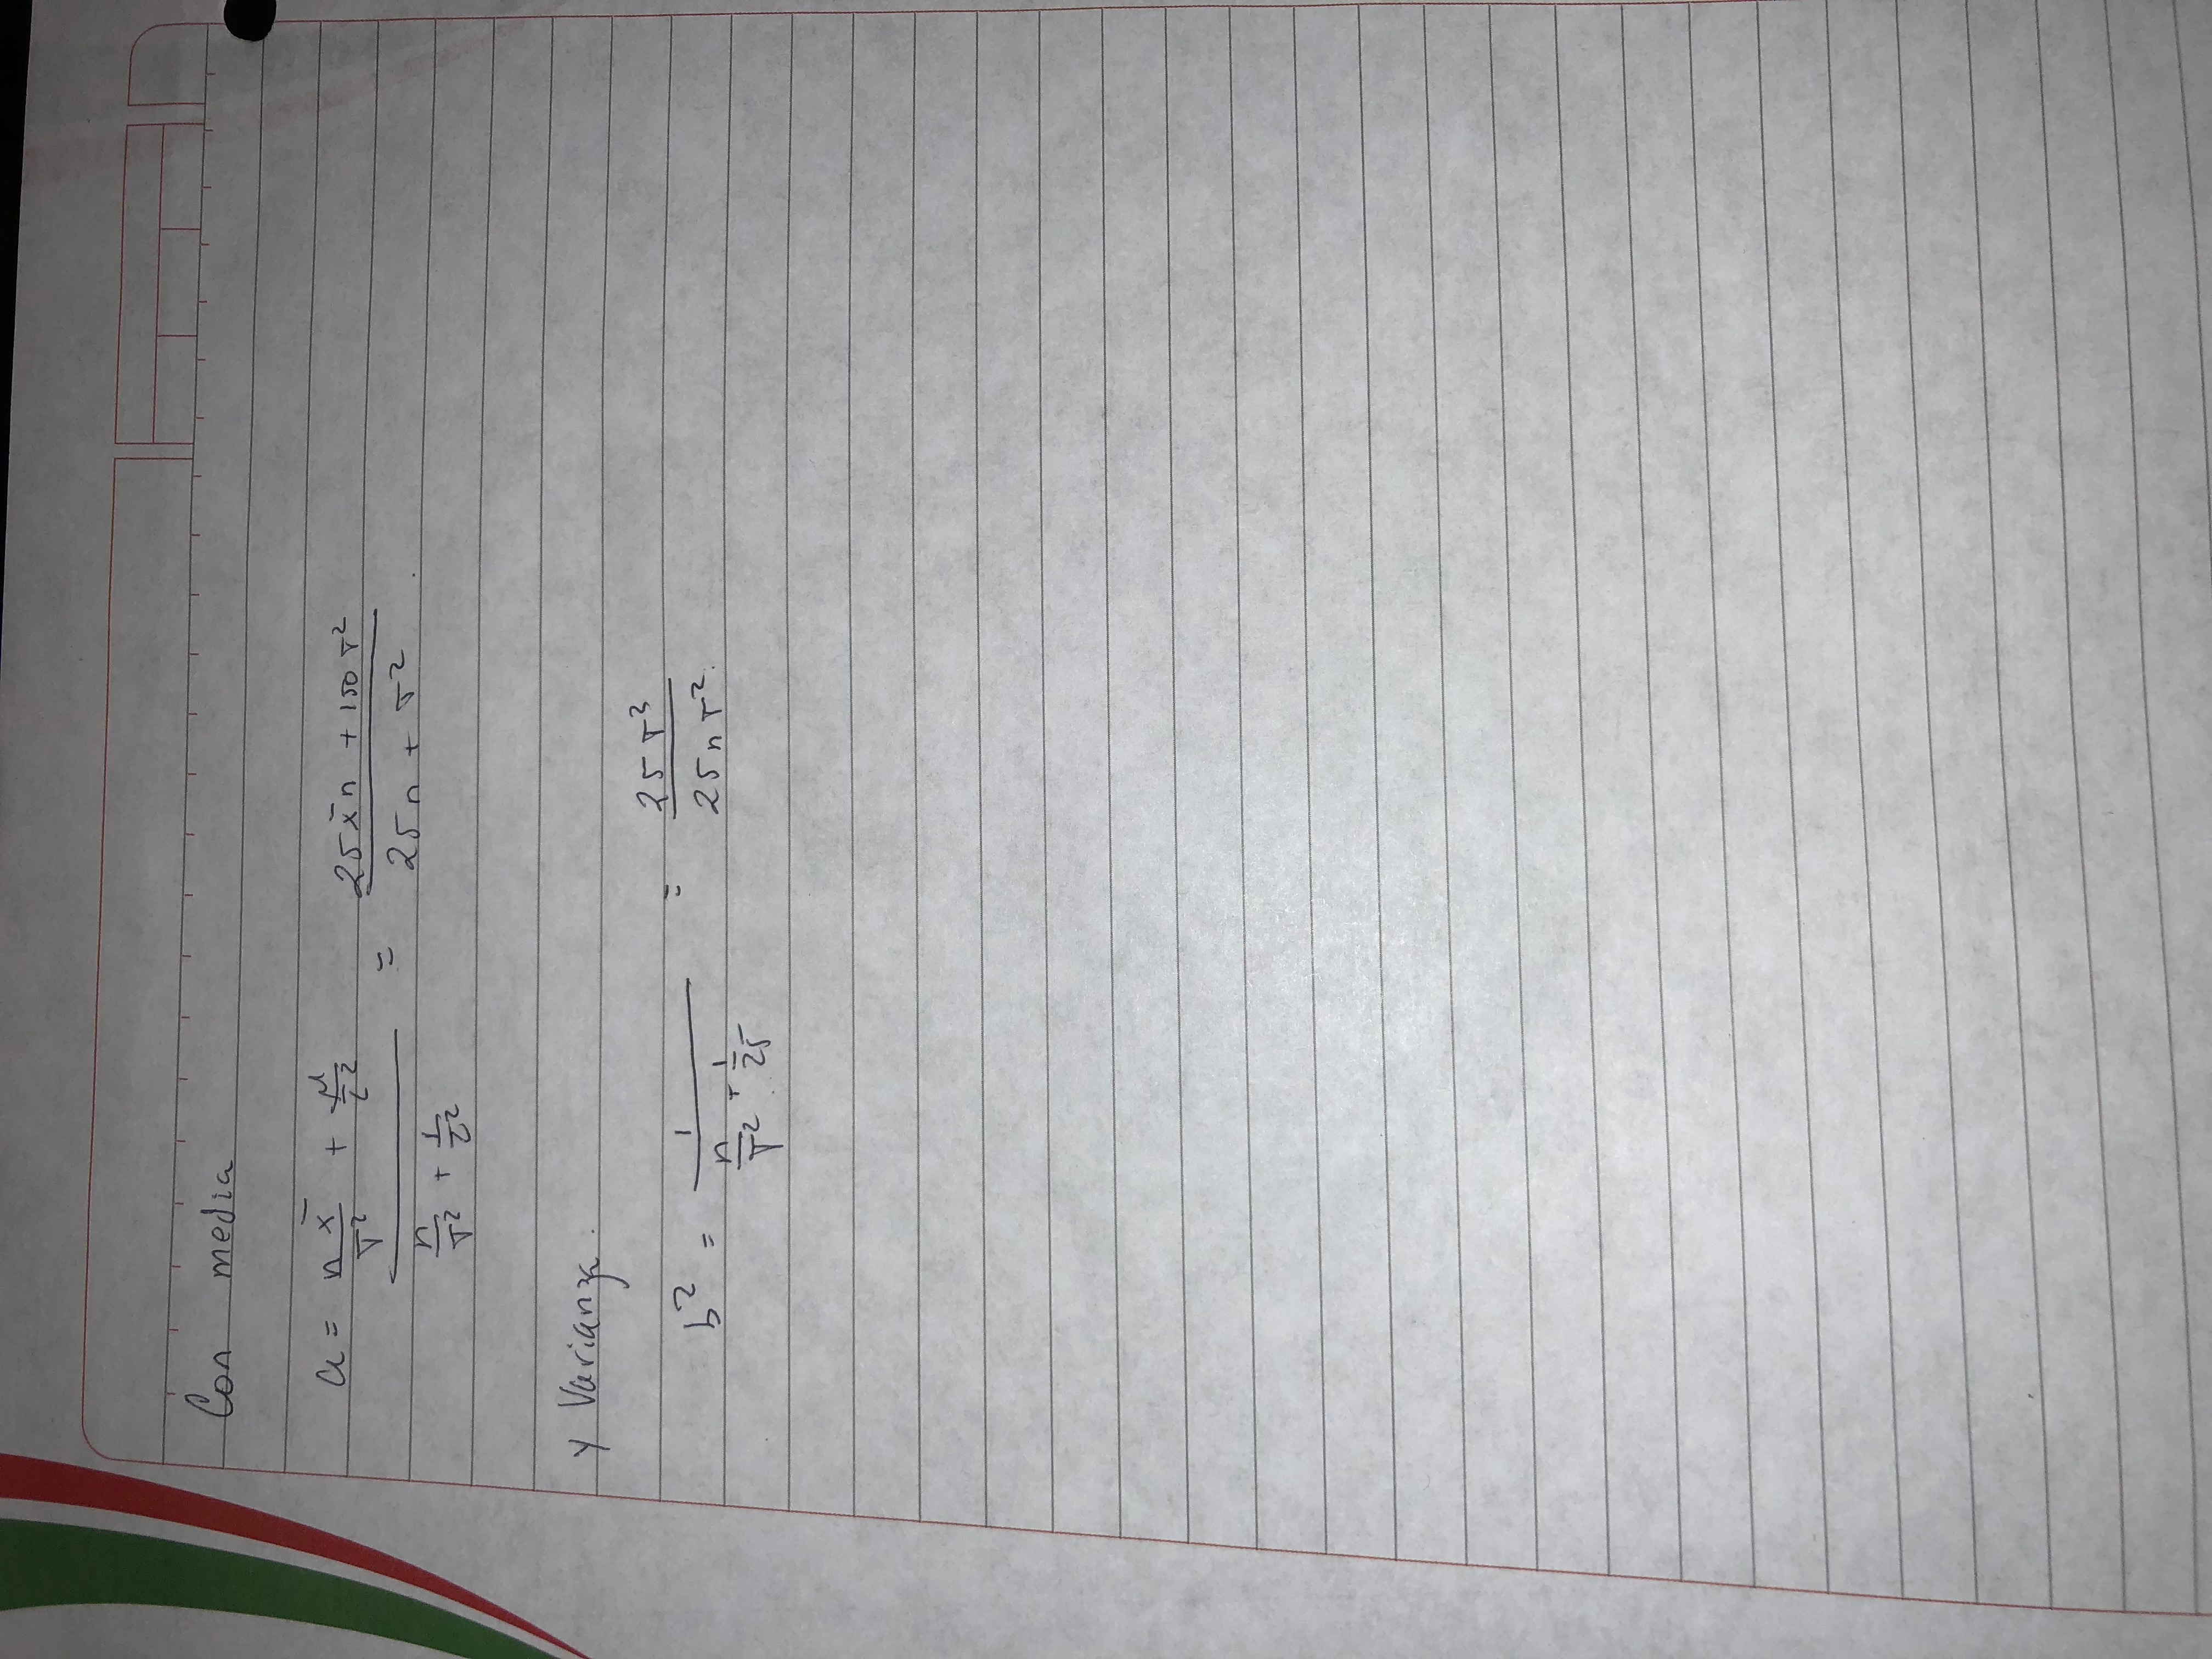 Con media
a = (n x̄ / σ² + μ / τ²) / (n / σ² + 1 / τ²) = (25 x̄ n + 150 σ²) / (25 n + σ²).
y Varianza.
b² = 1 / (n / σ² + 1 / 25) = 25 σ³ / 25 n σ².